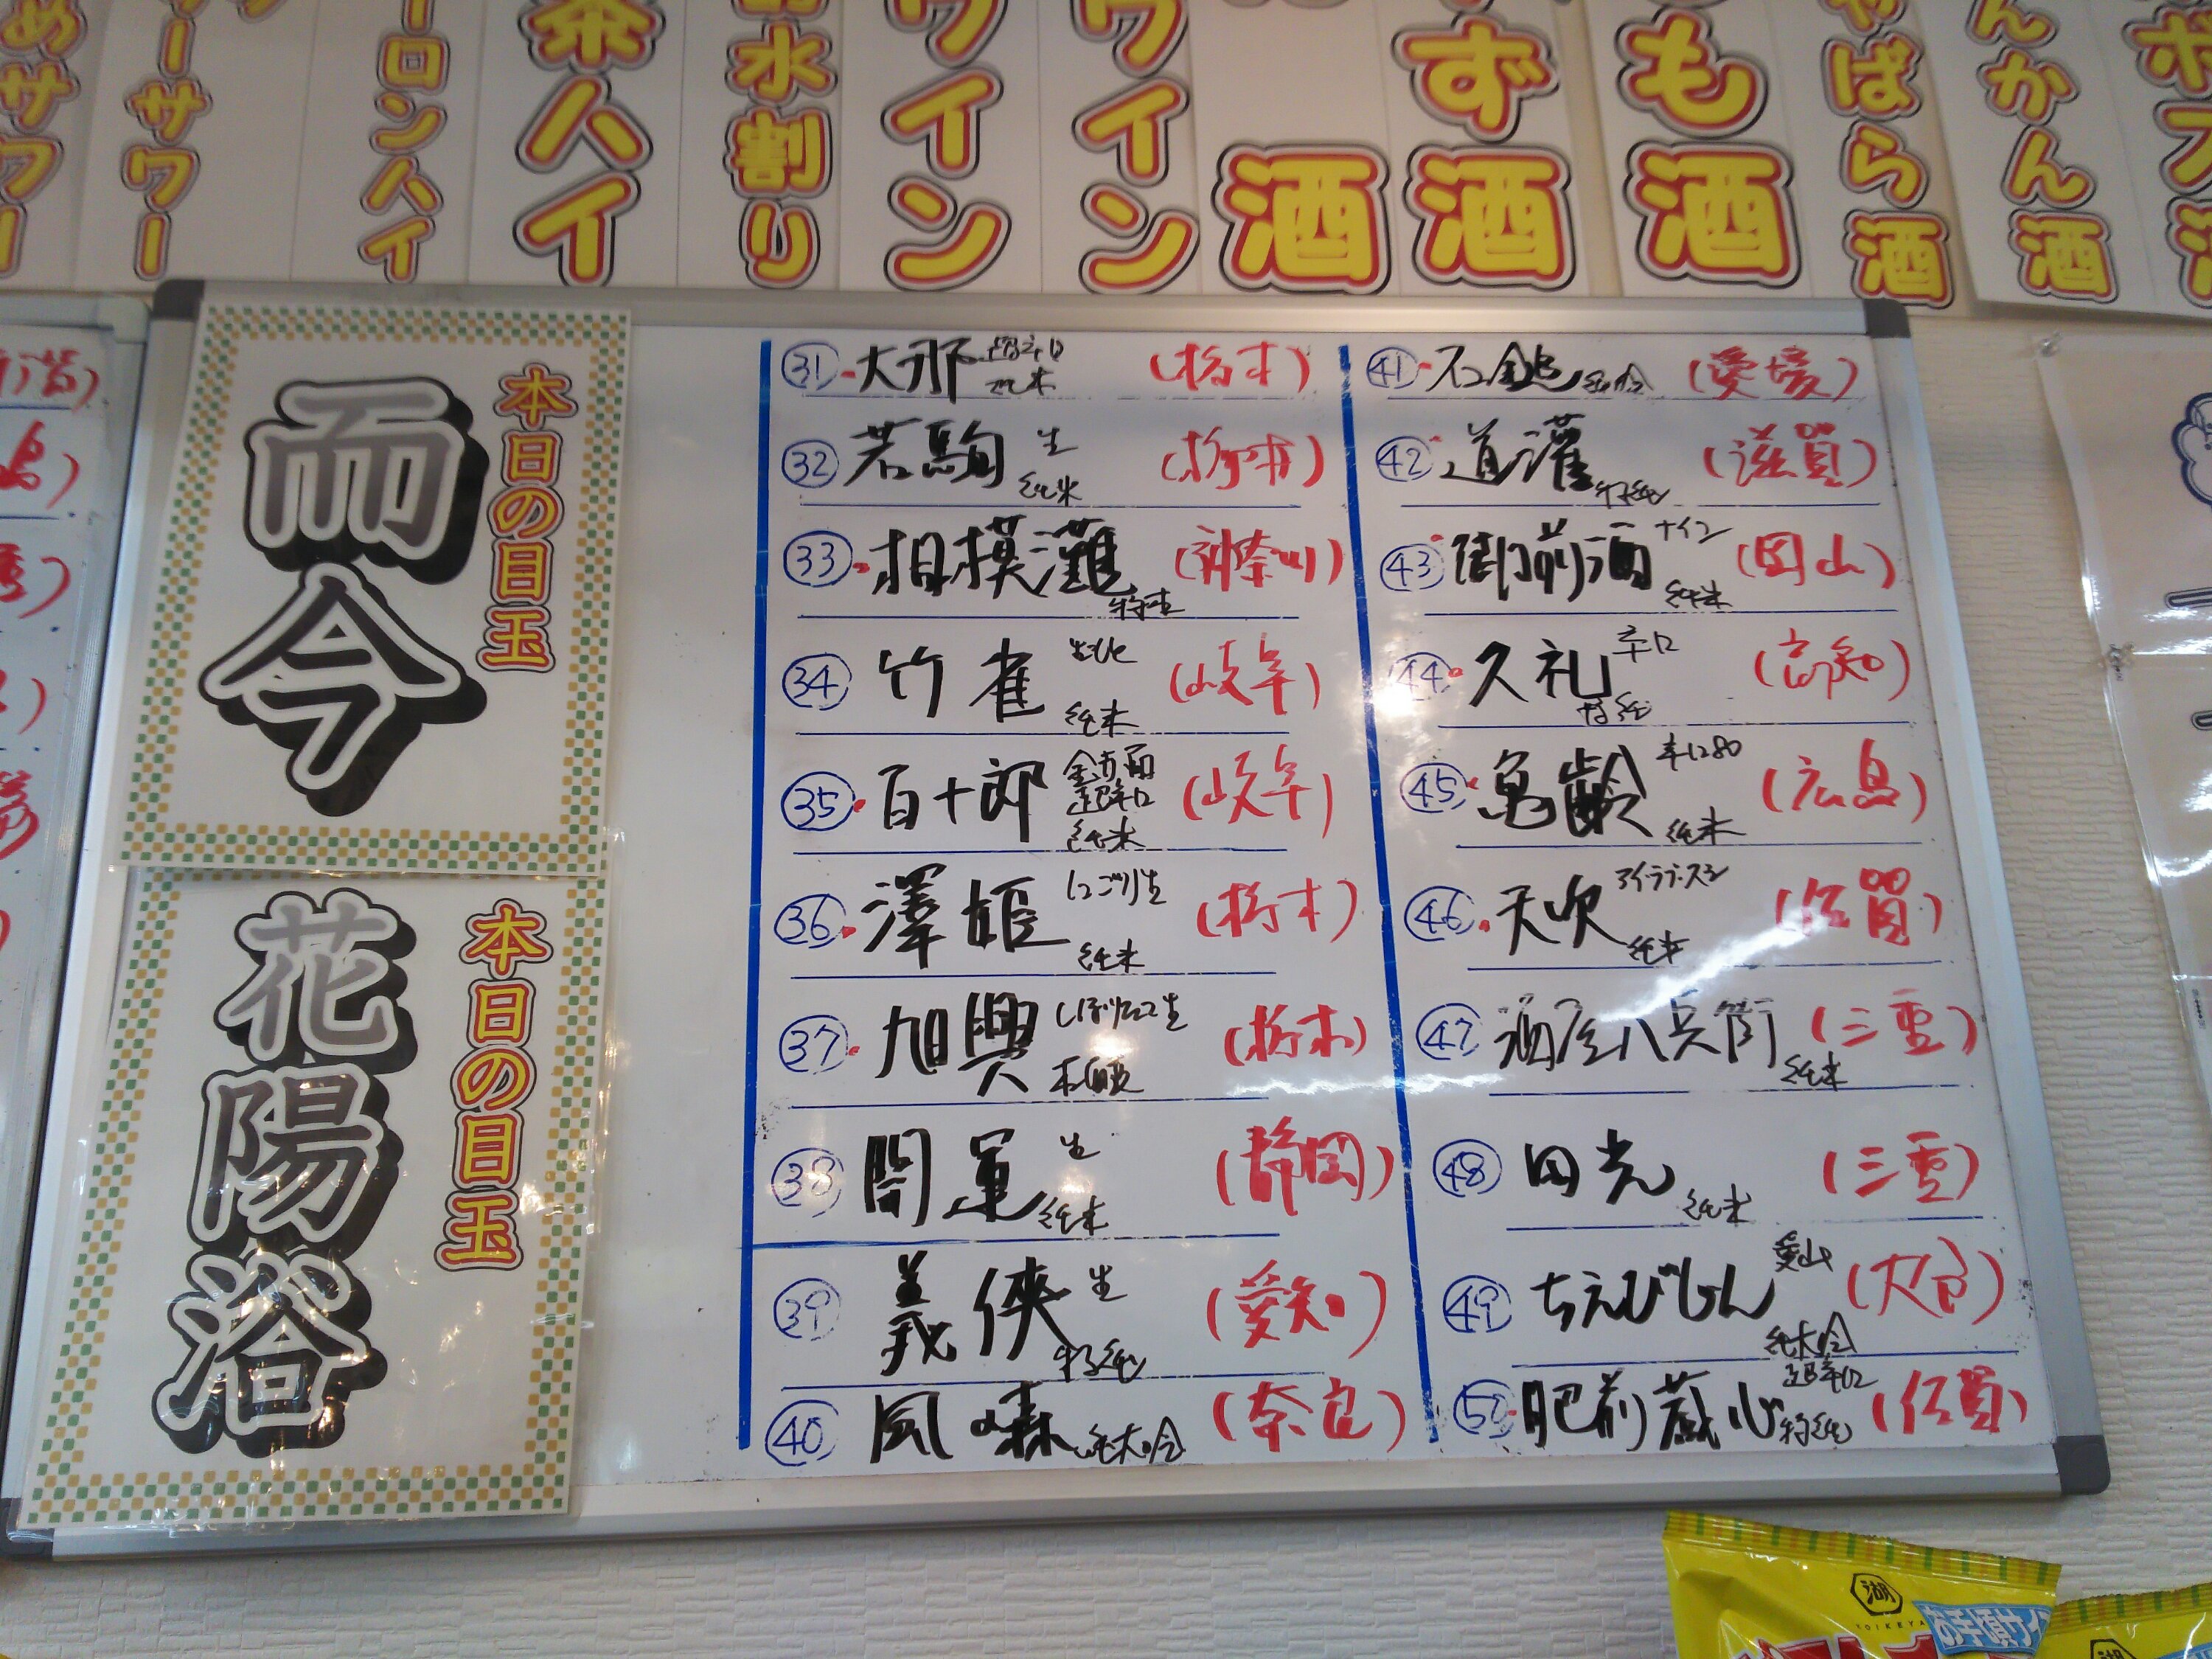 めサワー
ーサワー
ーロンハイ
茶ハイ
水割り
ワイン
ワイン
酒
ず酒
も酒
ばら酒
んかん酒
本日の目玉
而今
本日の目玉
花陽浴
㉛大那 超辛口 純米 (栃木)
㉜若駒 生 純米 (栃木)
㉝相模灘 特本 (神奈川)
㉞竹雀 生もと 純米 (岐阜)
㉟百十郎 赤面 超辛口 純米 (岐阜)
㊱澤姫 にごり生 純米 (栃木)
㊲旭興 生 本醸 (栃木)
㊳開運 生 純米 (静岡)
㊴義侠 生 特純 (愛知)
㊵風の森 純大吟 (奈良)
㊶石鎚 純吟 (愛媛)
㊷道灌 特純 (滋賀)
㊸御前酒 ナイン 純米 (岡山)
㊹久礼 辛口 特純 (高知)
㊺亀齢 辛口80 純米 (広島)
㊻天吹 純米 (佐賀)
㊼酒屋八兵衛 純米 (三重)
㊽田光 純米 (三重)
㊾ちえびじん 愛山 純大吟 (大分)
㊿肥前蔵心 超辛口 特純 (佐賀)
湖
お手頃サイ
湖